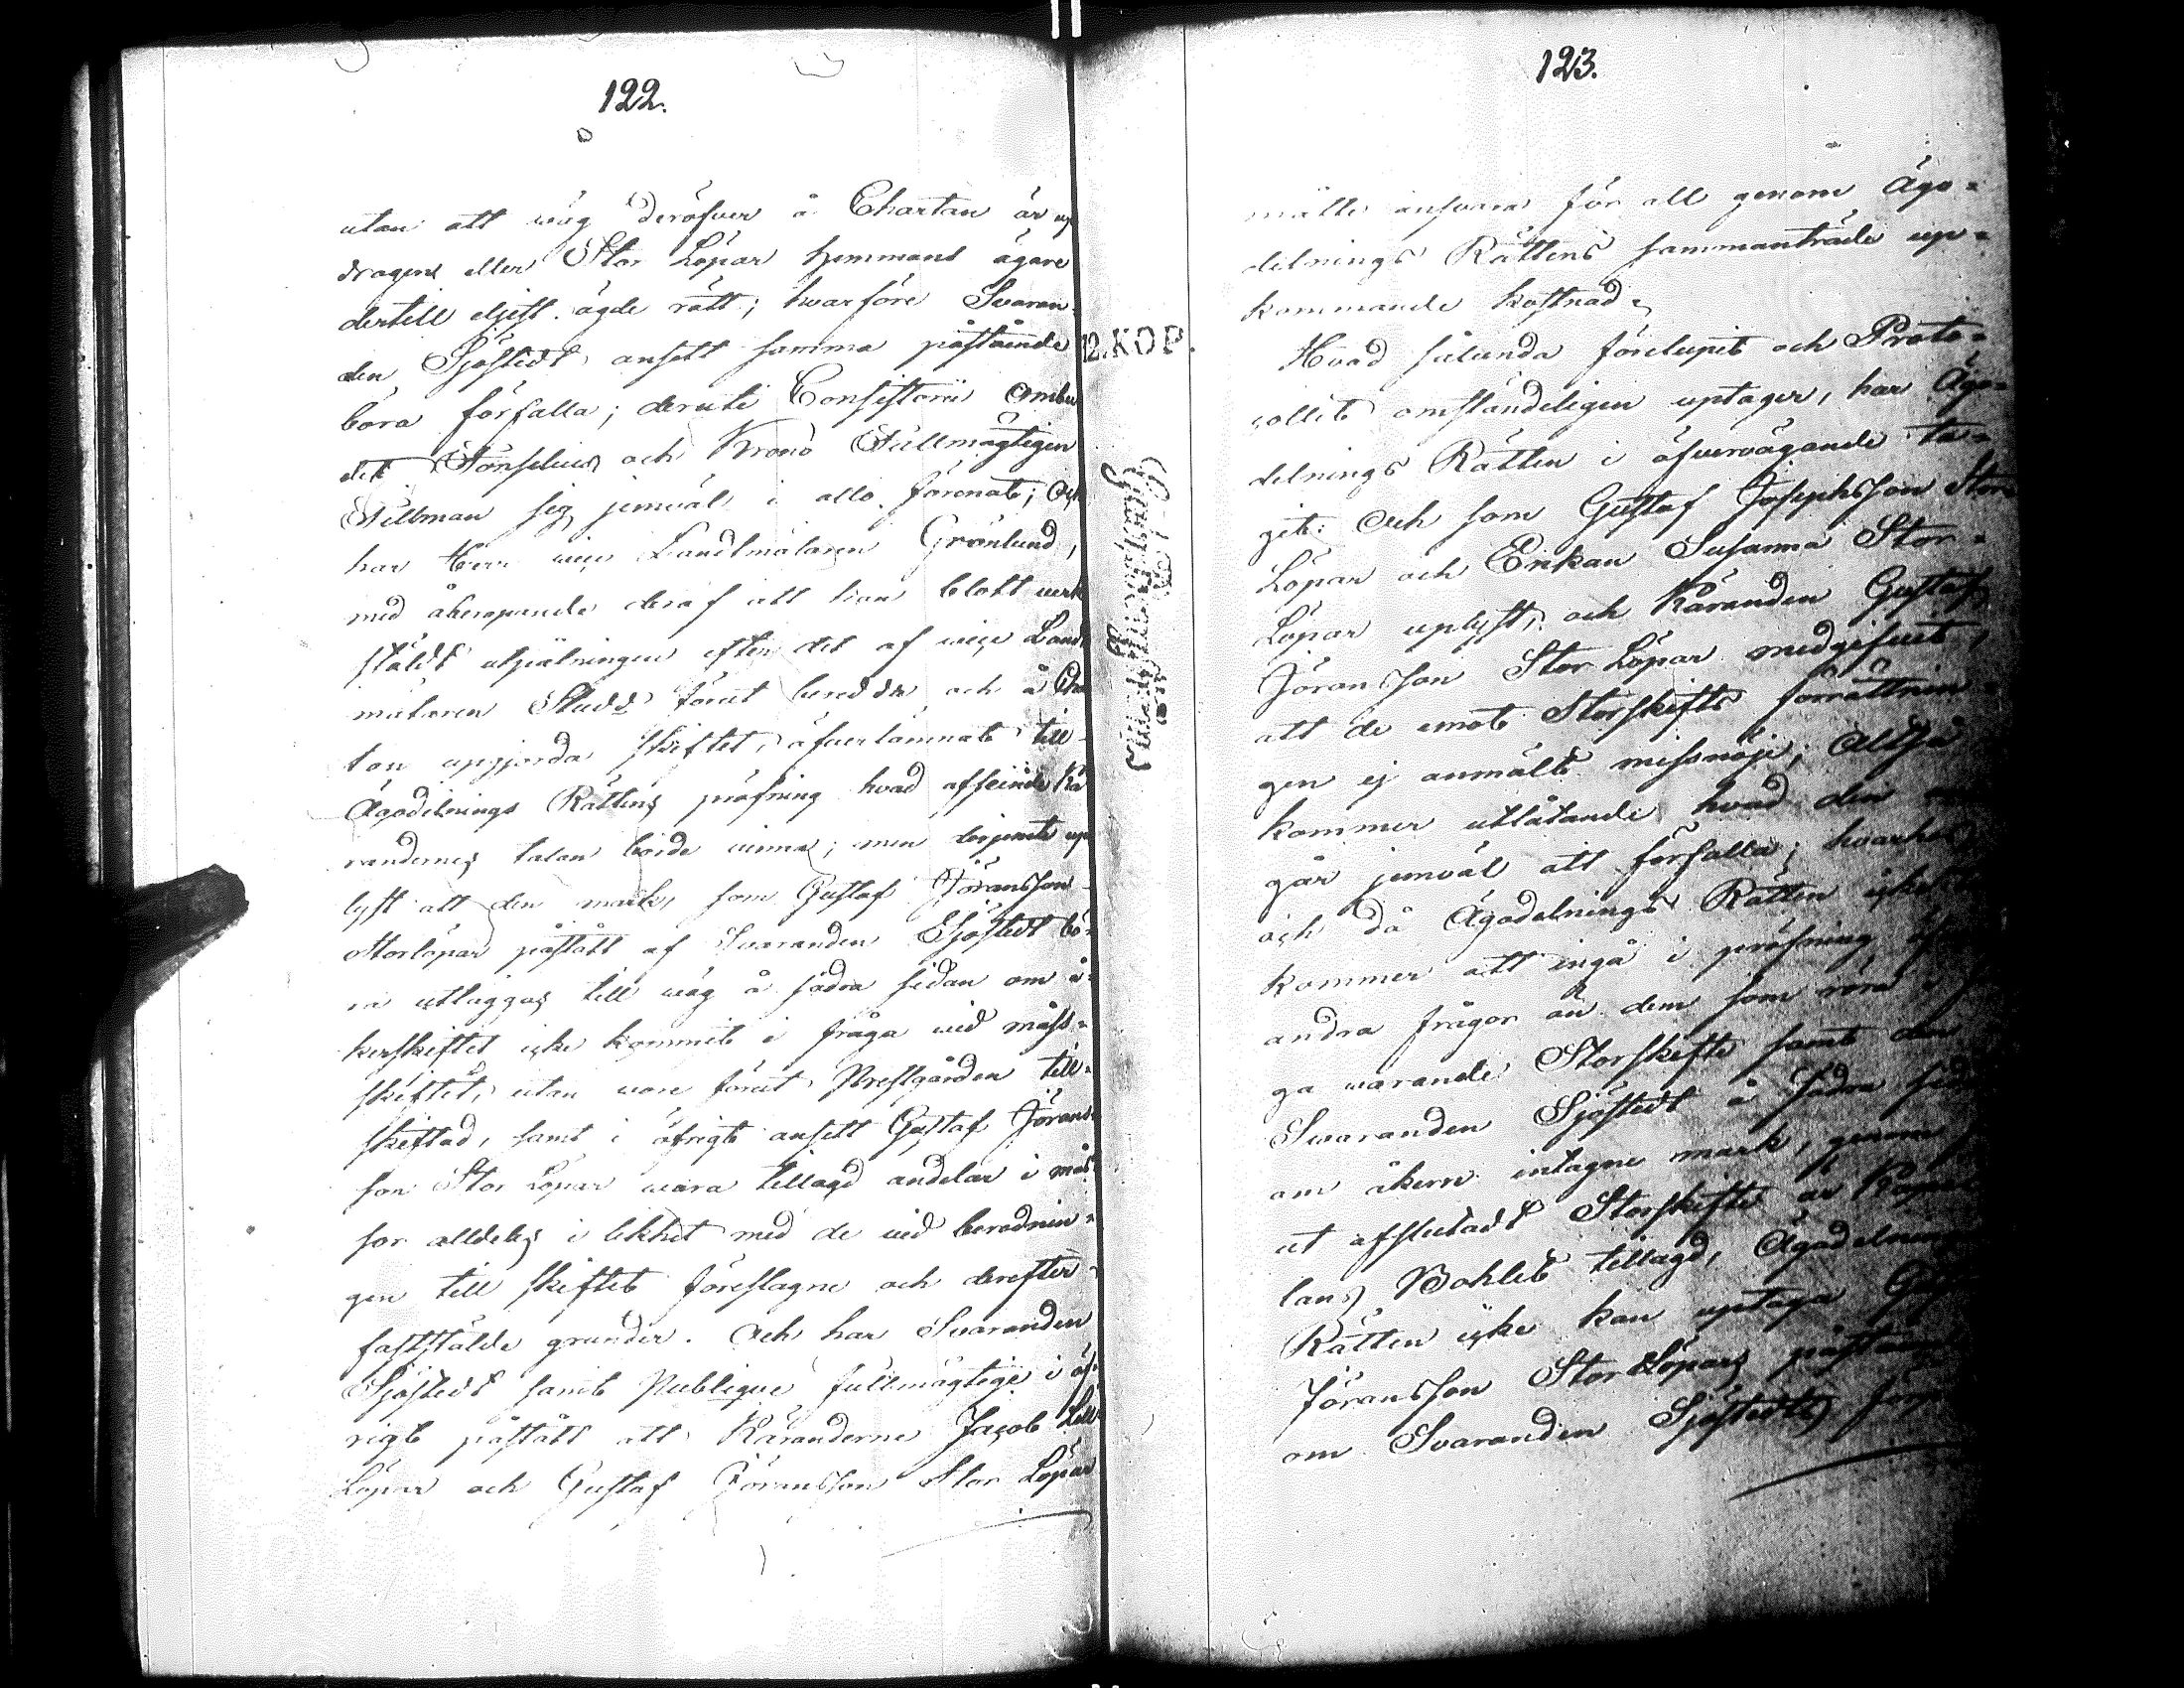 122.
utan att wäg deröfver å Chartan är up
dragen eller Stor Löpar hemmans ägare
dertill eljest ägde rätt; hvarföre Svaran-
den Sjöstedt ansett samma påstående
böra förfalla; deruti Consistorii Ombu
det Forselius och Krono Fullmägtigen
Tillman sig jemväl i allo förenat; Och
har Herr vice Landtmätaren Grönlund,
med åberopande deraf att han blott verk
stäldt utpålningen efter det af vice Landt
mätaren Studd förut beredda och å Char
tan upgjorda skiftet, öfverlämnat till
Ägodelnings Rättens pröfning hvad afseende Kä
randernes talan borde vinna; men derjemte up
lyst att den mark, som Gustaf Jöransson
Storlöpar påstått af Svaranden Sjöstedt bö-
ra utläggas till wäg å södra sidan om å-
kerskiftet icke kommit i fråga vid måss-
skiftet, utan vore förut Prestgården till-
skiftad, samt i öfrigt ansett Gustaf Jörans-
son Stor Löpar wara tillagd andelar i mås-
sor alldeles i likhet med de vid berednin-
gen till skiftet föreslagne och derefter
fastställde grunder. Och har Svaranden
Sjöstedt samt Publique fullmägtige i öf-
rigt påstått att Käranderne Jacob Lill
Löpar och Gustaf Jöransson Stor Löpar
12. KOP.
123.
mätte ansvara för all genom Ägo-
delnings Rättens sammanträde up-
kommande kostnad.
Hvad sålunda förelupit och Proto-
collet omständeligen uptager, har Ägo-
delnings Rätten i öfvervägande ta-
git: Och som Gustaf Josephsson Stor
Löpar och Enkan Susanna Stor-
Löpar uplyst, och Käranden Gustaf
Jöransson Stor Löpar medgifvit,
att de emot Storskifts förrättnin-
gen ej anmält missnöje; Alltså
kommer utlåtande hvad den
går jemväl att förfalla; hvarhos
och då Ägodelnings Rätten icke
kommer att ingå i pröfning af
andra frågor än dem som röra
ga warande Storskifte samt den
Svaranden Sjöstedt å södra sidan
om åkern intagne mark, genom
ut afslutadt Storskifte är Kapel
lans Bohlet tillagd, Ägodelnings
Rätten icke kan uptaga
Jöransson Stor Löpars påstående
om Svaranden Sjöstedts